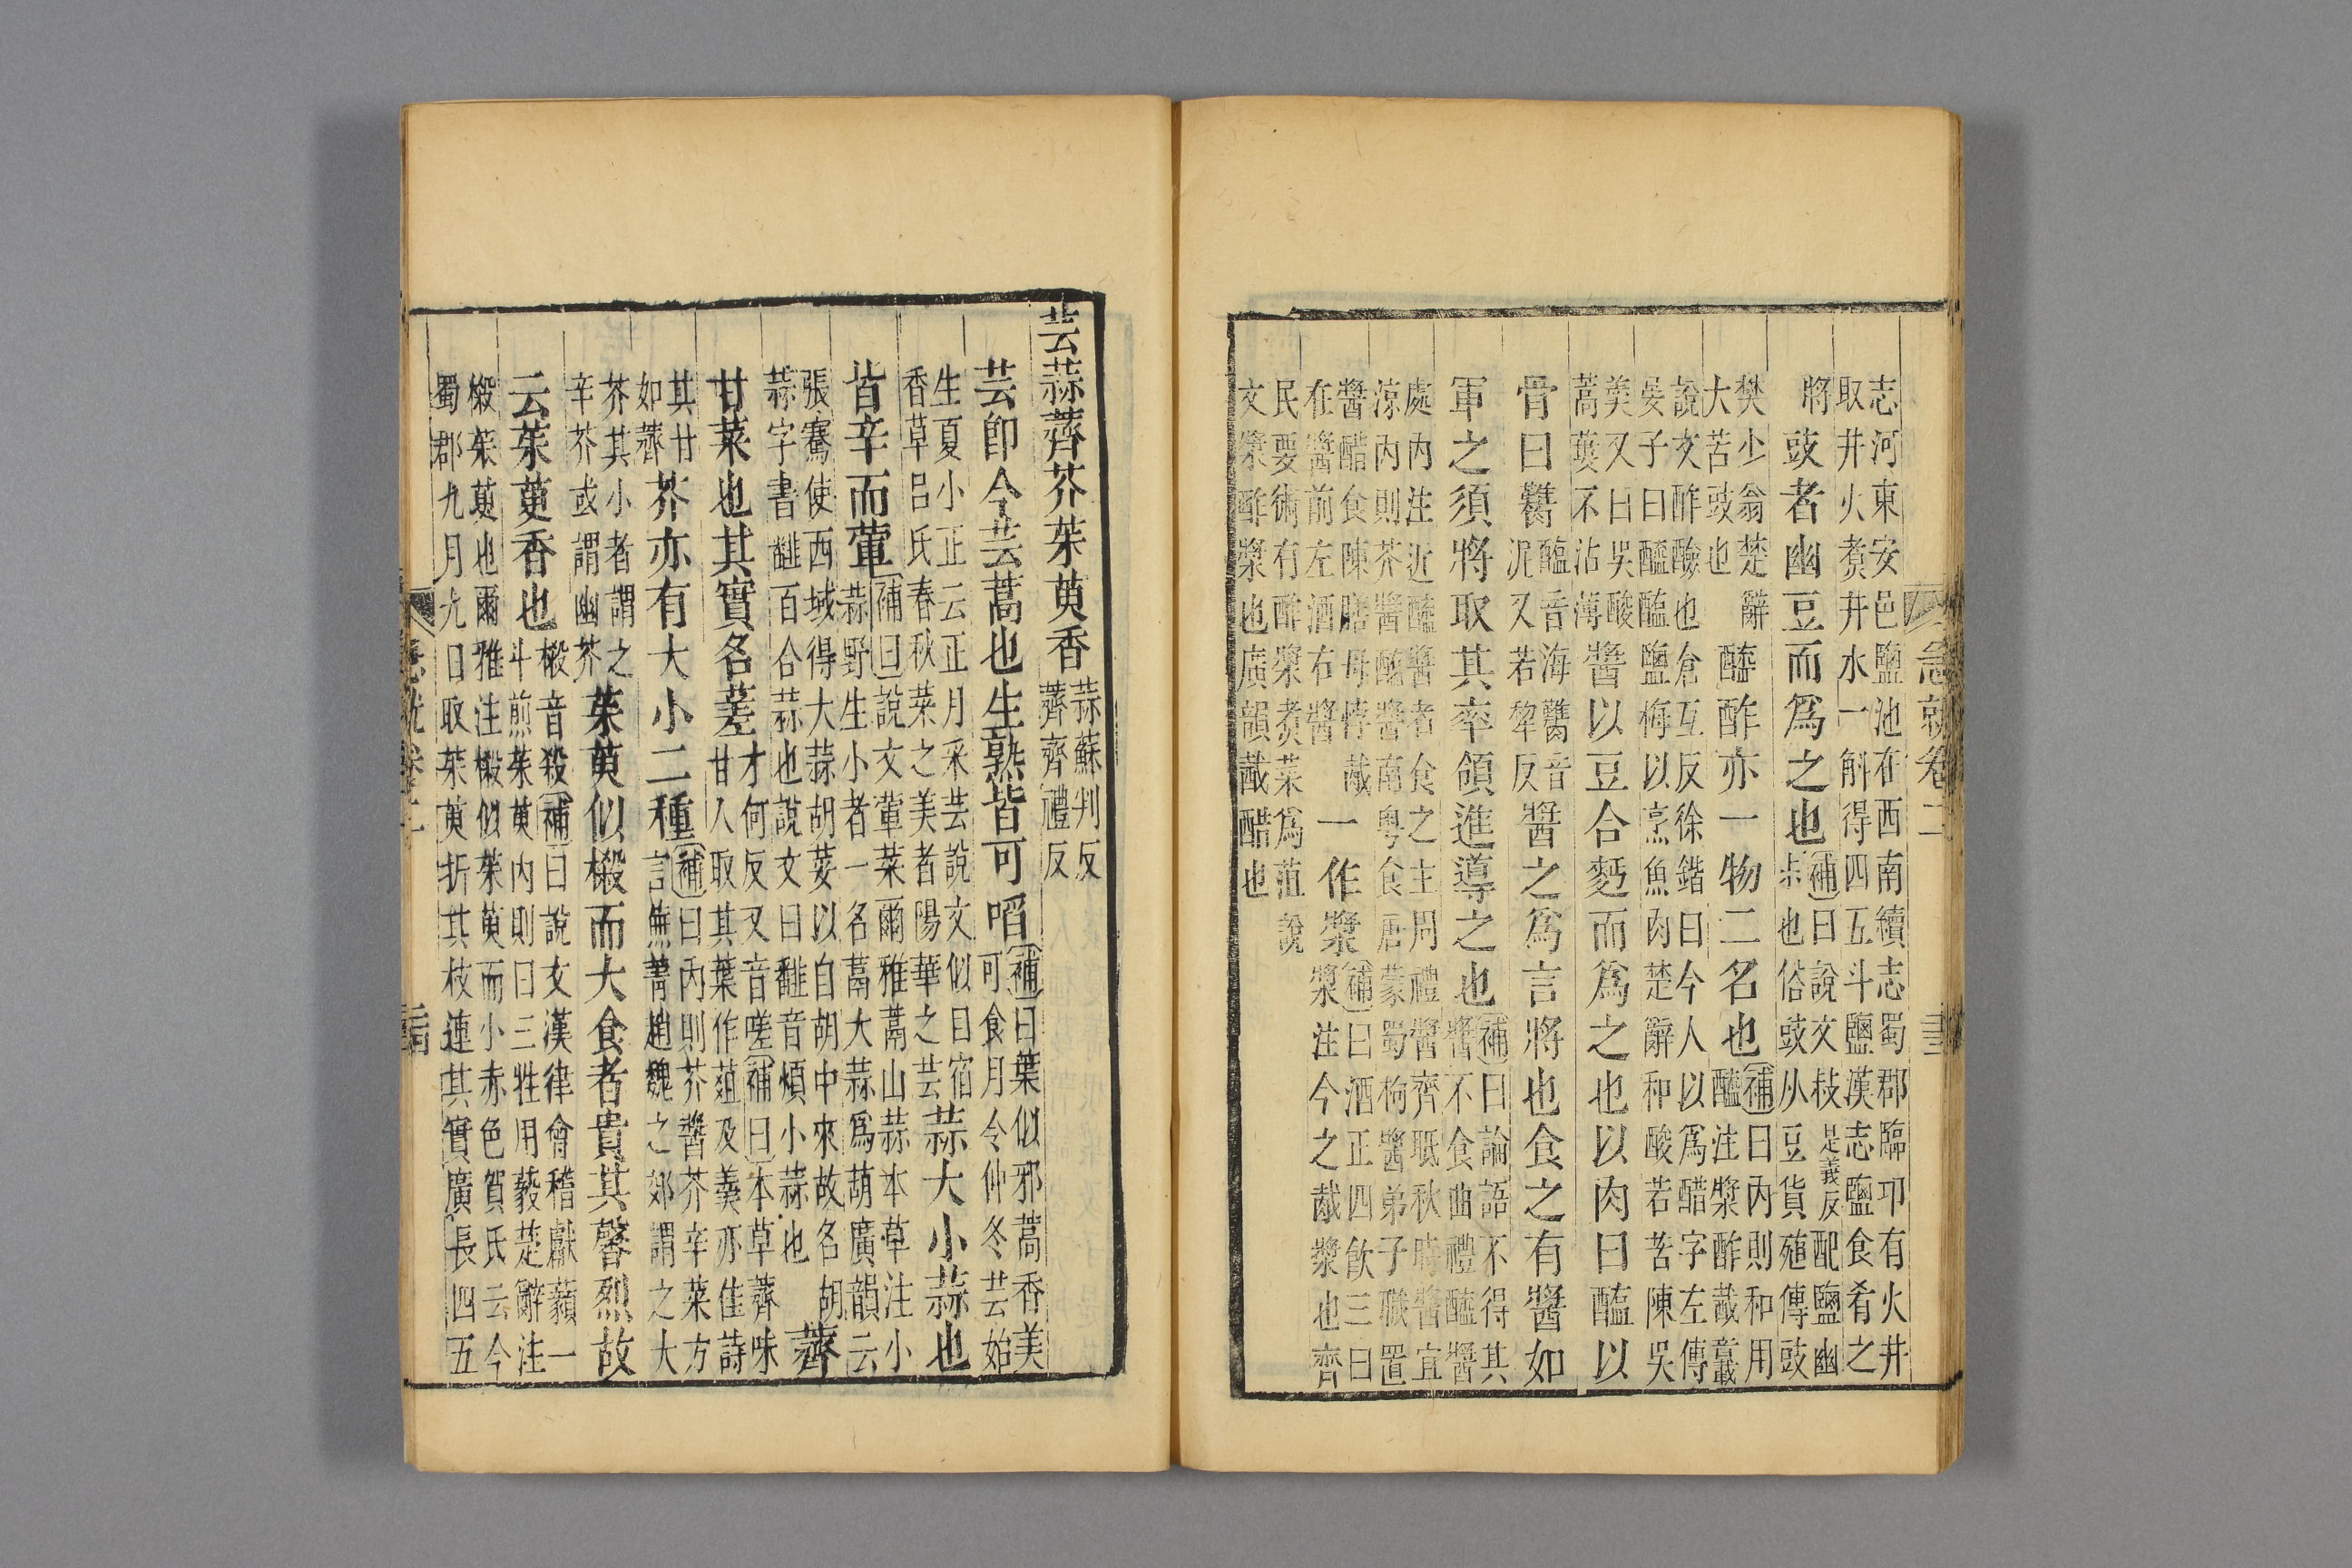 急就卷二
志河東安邑鹽池在西南續志蜀郡臨邛有火井
取井火煑井水一斛得四五斗鹽漢志鹽食肴之
將
豉者幽豆而爲之也
補曰說文𣐺是義反配鹽幽
尗也俗豉从豆貨殖傳豉
樊少翁楚辭
大苦豉也
醯酢亦一物二名也
補曰內則和用
醯注漿酢䤅
說文酢醶也倉互反徐鍇曰今人以爲醋字左傳
晏子曰醯醢鹽梅以烹魚肉楚辭和酸若苦陳吳
羮又曰吳酸
蒿蔞不沾薄
醬以豆合麪而爲之也以肉曰醢以
骨曰臡
醢音海臡音
泥又若犂反
醬之爲言將也食之有醬如
軍之須將取其率領進導之也
補曰論語不得其
醬不食曲禮醢醬
處內注近醢醬者食之主周禮醬齊眡秋時醬宜
涼內則芥醬醢醬南粤食唐蒙蜀枸醬弟子職置
醬酷食陳膳毋悖胾
在醬前左酒右醬
一作漿
補曰酒正四飲三曰
漿注今之䤅漿也齊
民要術有酢漿煑菜爲菹說
文漿酢漿也廣韻䤅醋也
芸蒜薺芥茱萸香
蒜蘇判反
薺齊禮反
芸卽今芸蒿也生熟皆可啗
補曰葉似邪蒿香美
可食月令仲冬芸始
生夏小正云正月采芸說文似目宿
香草呂氏春秋菜之美者陽華之芸
蒜大小蒜也
皆辛而葷
補曰說文葷菜爾雅蒚山蒜本草注小
蒜野生小者一名蒚大蒜爲葫廣韻云
張騫使西域得大蒜胡荽以自胡中來故名胡
蒜字書𩐏百合蒜也說文曰𩐏音煩小蒜也
薺
甘菜也其實名蒫
才何反又音嗟補曰本草薺味
甘人取其葉作菹及羹亦佳詩
其甘
如薺
芥亦有大小二種
補曰內則芥醬芥辛菜方
言蕪菁趙魏之郊謂之大
芥其小者謂之
辛芥或謂幽芥
茱萸似樧而大食者貴其馨烈故
云茱萸香也
樧音殺補曰說文漢律會稽獻藙一
斗煎茱萸內則曰三牲用藙楚辭注
樧茱萸也爾雅注樧似茱萸而小赤色賀氏云今
蜀郡九月九日取茱萸折其枝連其實廣長四五